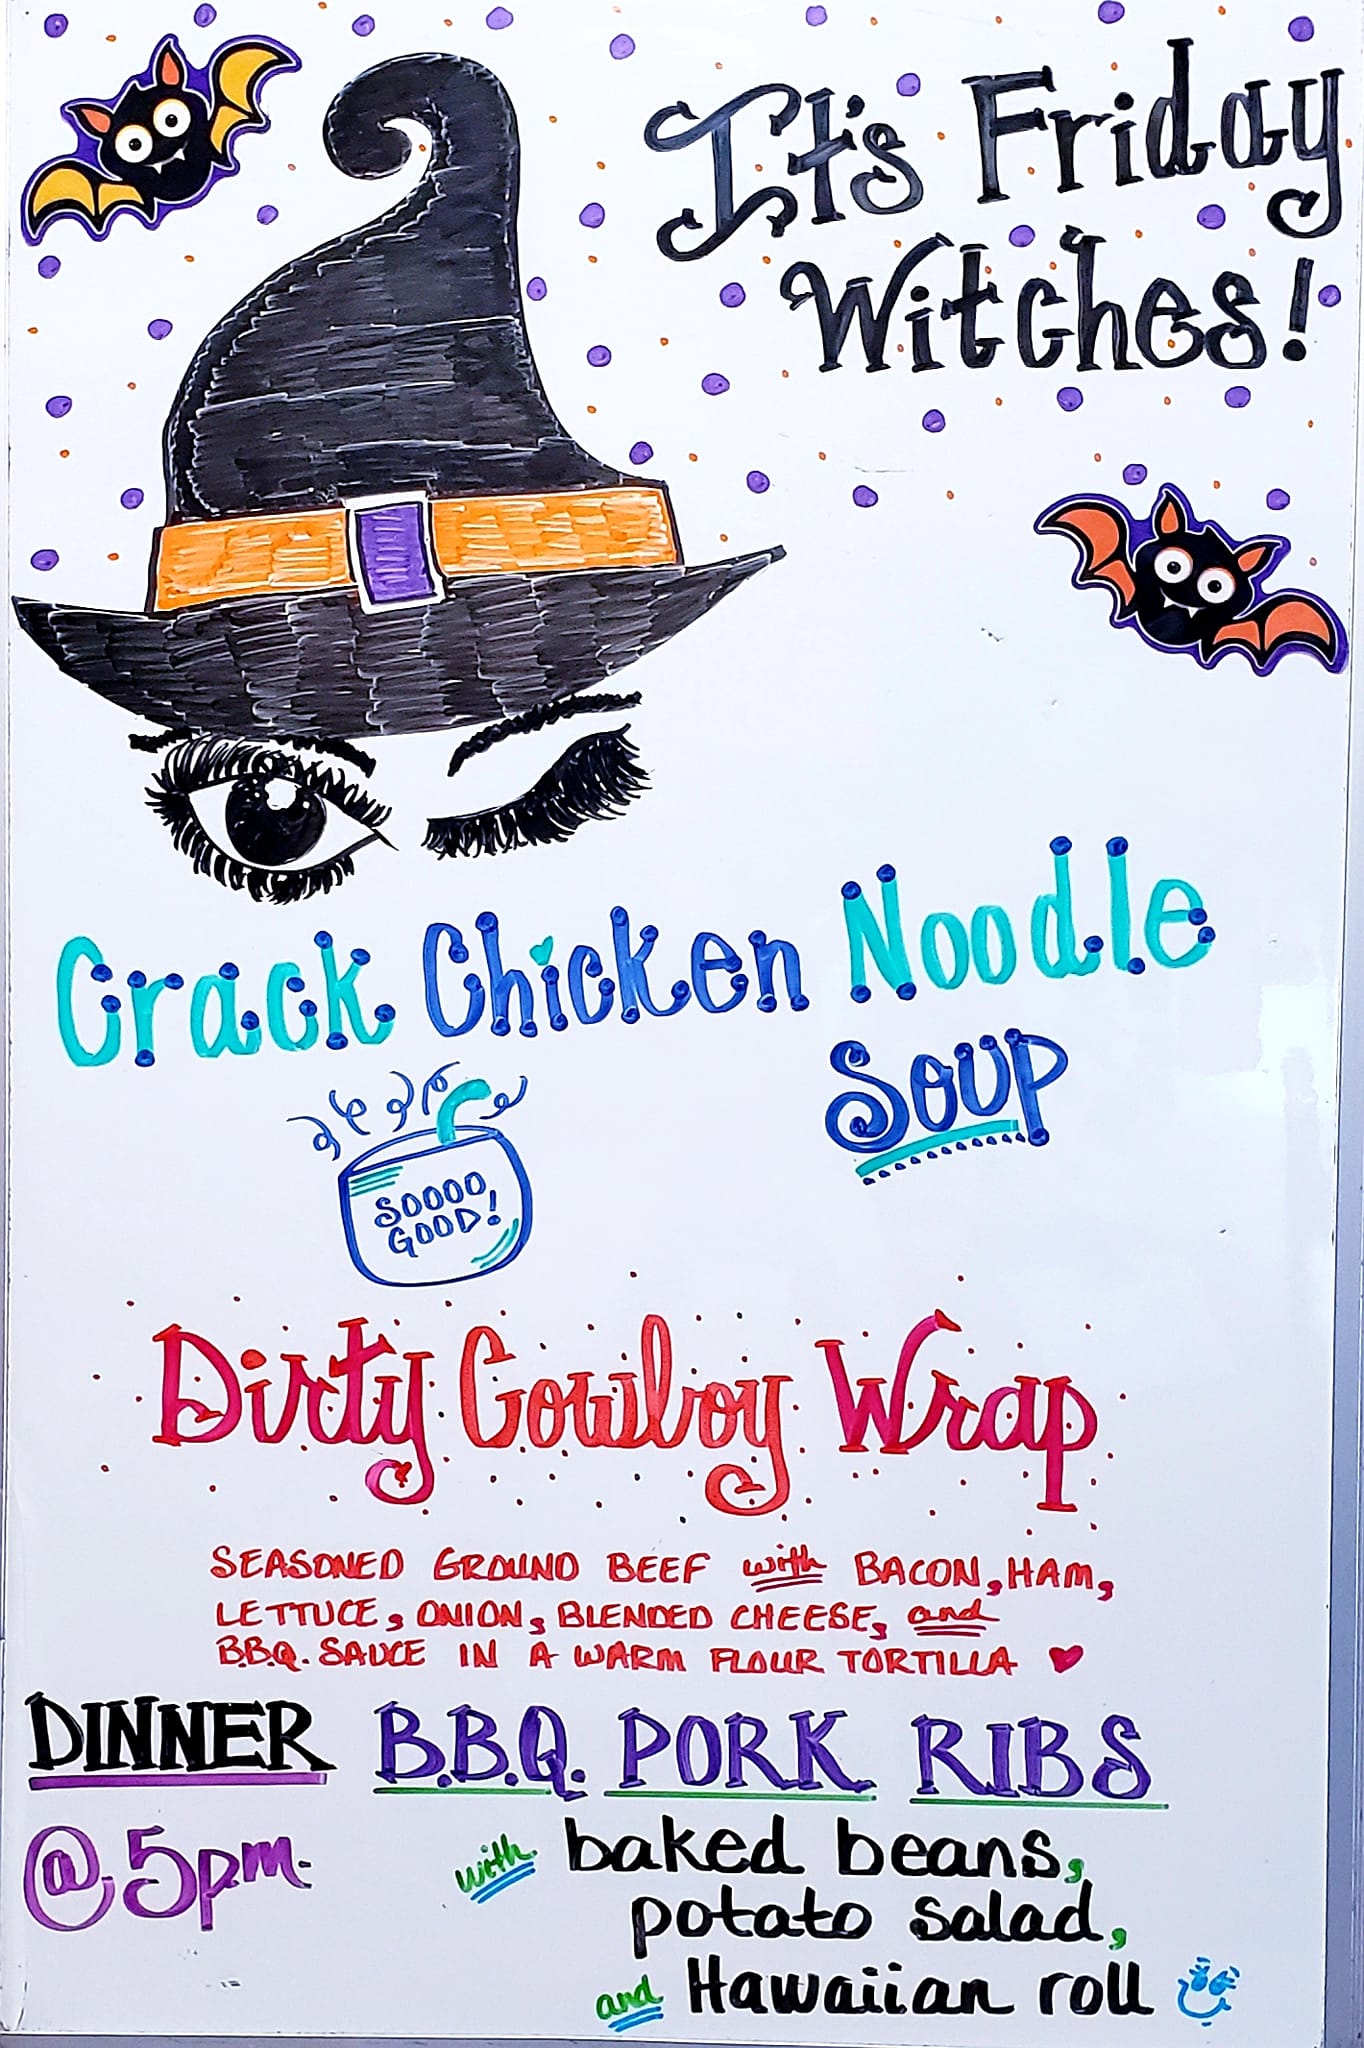 It's Friday
Witches!
Crack Chicken Noodle
Soup
SOOOO
GOOD!
Dirty Cowboy Wrap
SEASONED GROUND BEEF with BACON, HAM,
LETTUCE, ONION, BLENDED CHEESE, and
B.B.Q. SAUCE IN A WARM FLOUR TORTILLA
DINNER B.B.Q. PORK RIBS
@ 5pm. with baked beans,
potato salad,
and Hawaiian roll